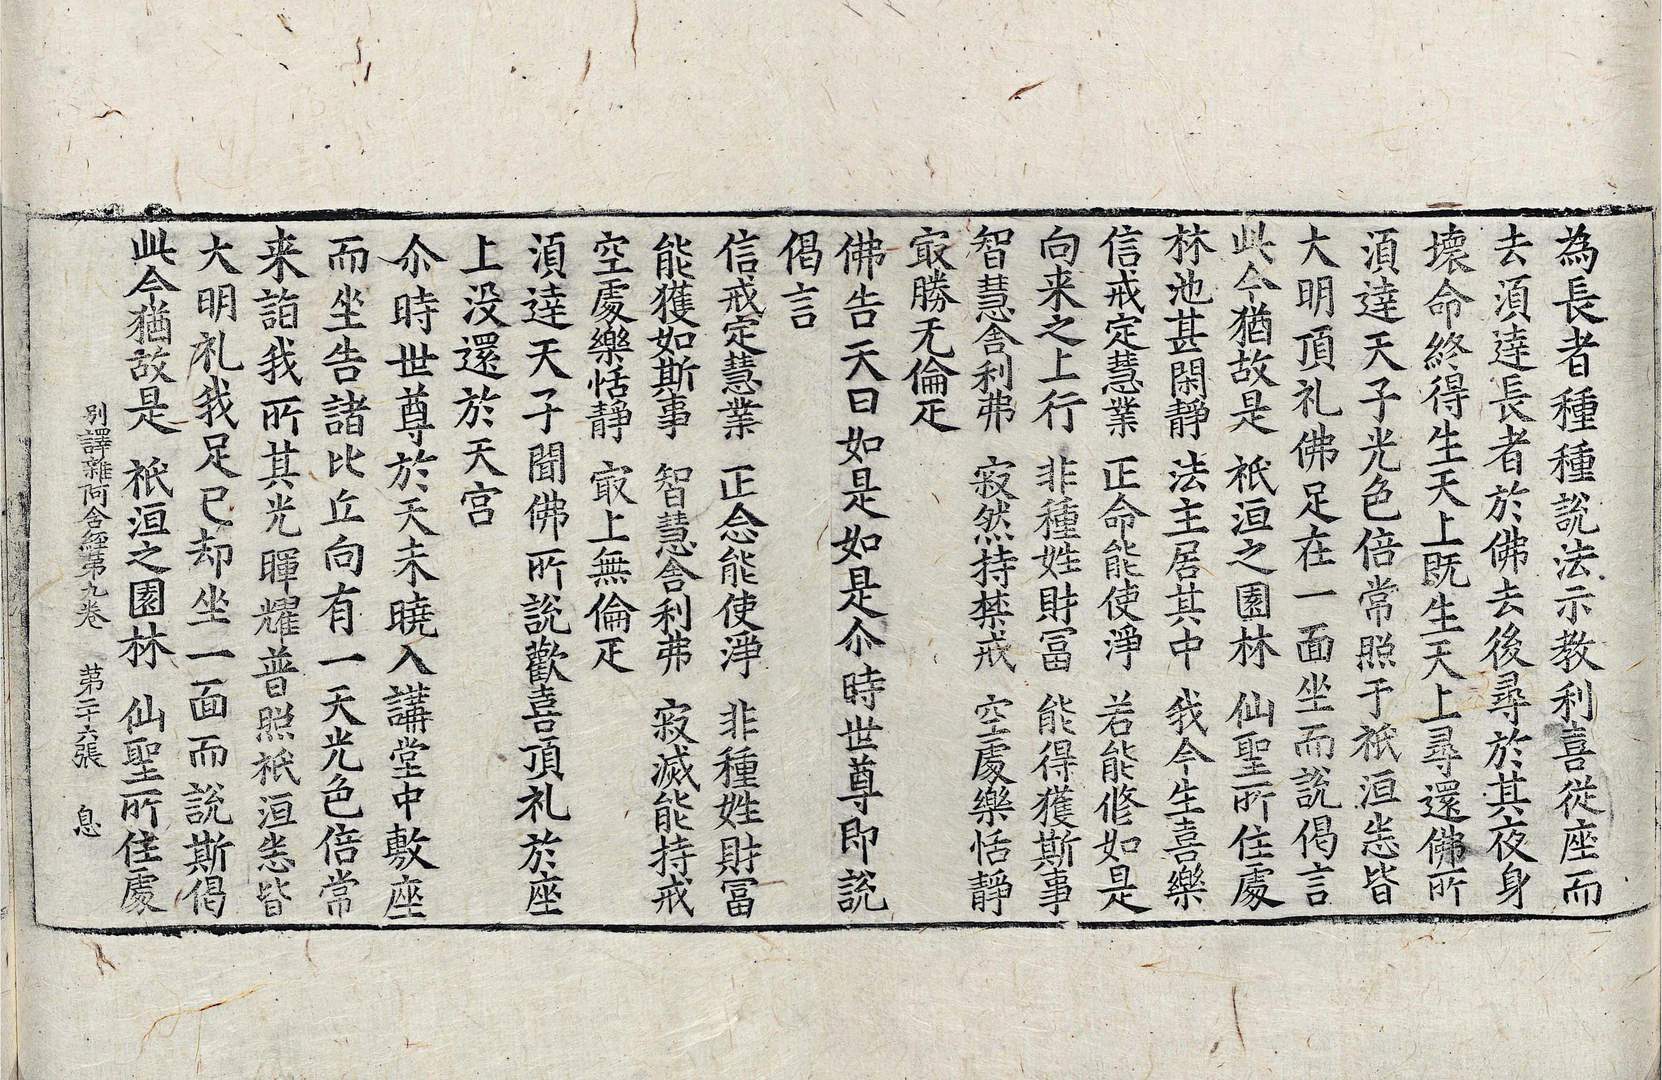 為長者種種説法示教利喜從座而
去湏達長者於佛去後尋於其夜身
壞命終得生天上既生天上尋還佛所
湏達天子光色倍常照于祇洹悉皆
大明頂礼佛足在一面坐而説偈言
此今猶故是　祇洹之園林　仙聖所住處
林池甚閑靜　法主居其中　我今生喜樂
信戒定慧業　正命能使淨　若能修如是
向来之上行　非種姓財冨　能得獲斯事
智慧舍利弗　寂然持禁戒　空處樂恬靜
冣勝无倫疋
佛告天曰如是如是尒時世尊即説
偈言
信戒定慧業　正念能使淨　非種姓財冨
能獲如斯事　智慧舍利弗　寂滅能持戒
空處樂恬靜　冣上無倫疋
湏達天子聞佛所説歡喜頂礼於座
上没還於天宫
尒時世尊於天未曉入講堂中敷座
而坐告諸比丘向有一天光色倍常
来詣我所其光暉耀普照祇洹悉皆
大明礼我足已却坐一面而説斯偈
此今猶故是　祇洹之園林　仙聖所住處
别譯雜阿含経第九卷　第二十六張　息